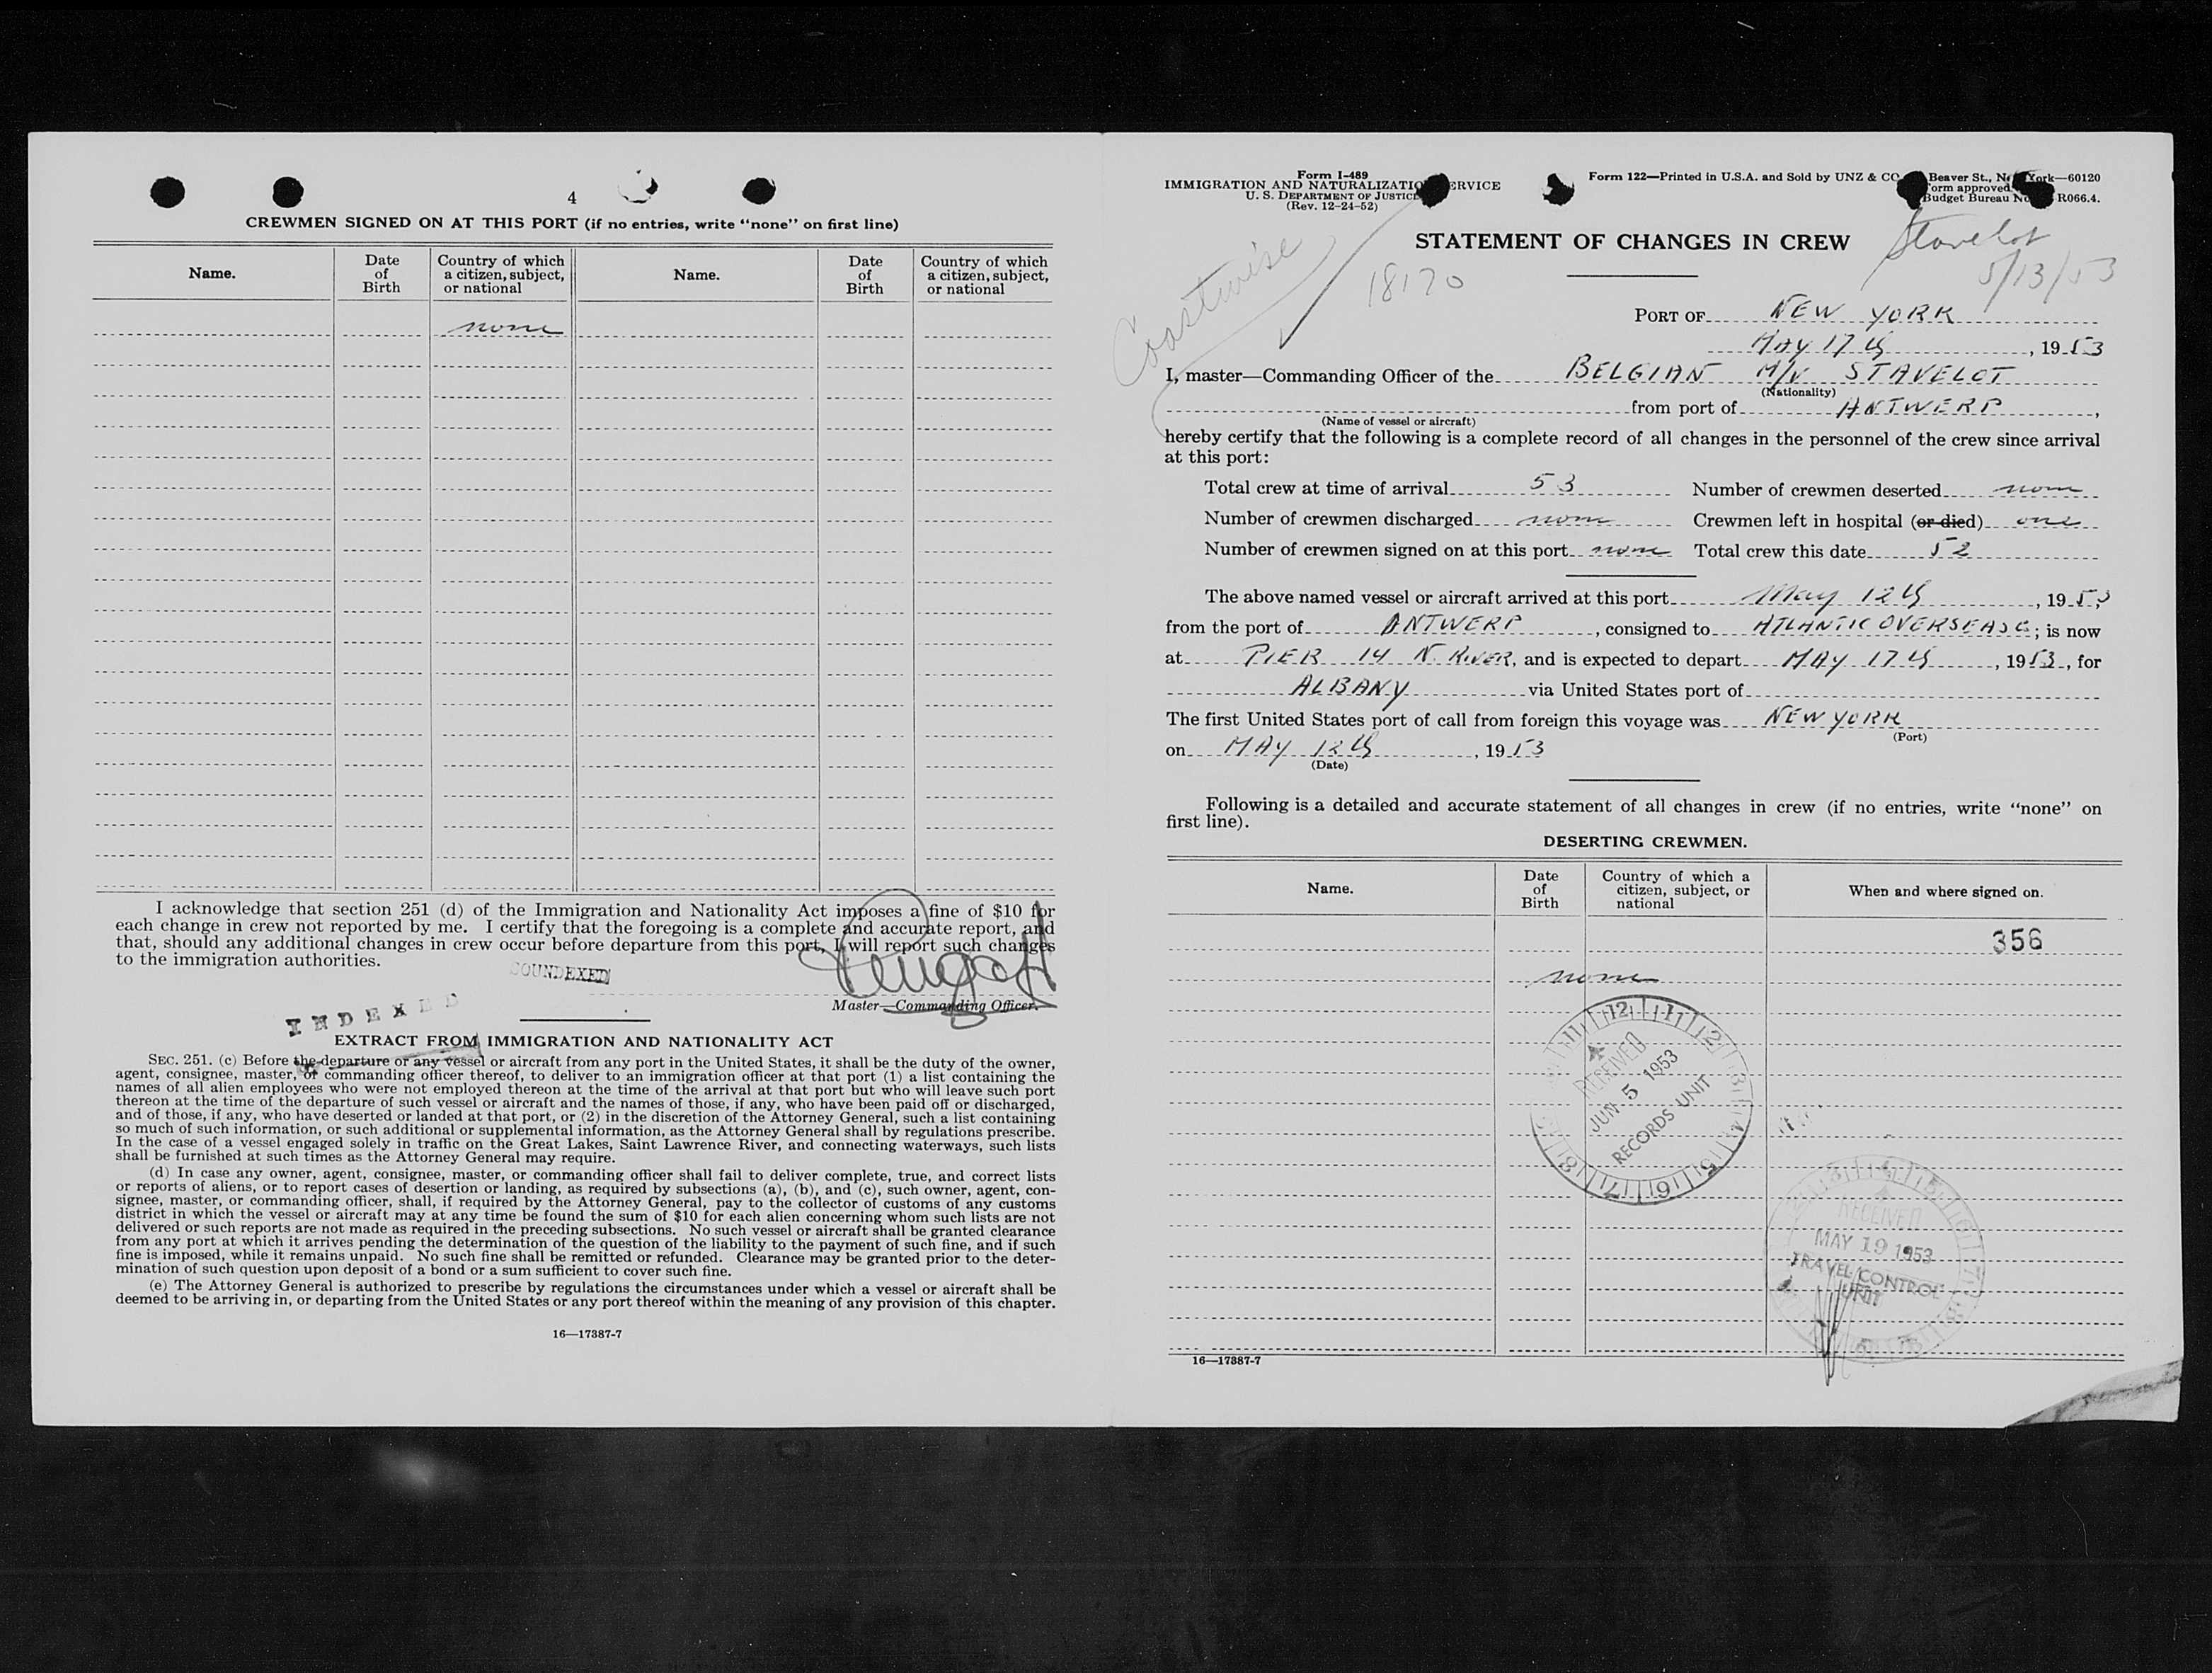 4
CREWMEN SIGNED ON AT THIS PORT (if no entries, write “none” on first line)
Name.
Date of Birth
Country of which a citizen, subject, or national
Name.
Date of Birth
Country of which a citizen, subject, or national
none
I acknowledge that section 251 (d) of the Immigration and Nationality Act imposes a fine of $10 for
each change in crew not reported by me. I certify that the foregoing is a complete and accurate report, and
that, should any additional changes in crew occur before departure from this port, I will report such changes
to the immigration authorities.
Master—Commanding Officer.
INDEXED
EXTRACT FROM IMMIGRATION AND NATIONALITY ACT
SEC. 251. (c) Before the departure or any vessel or aircraft from any port in the United States, it shall be the duty of the owner,
agent, consignee, master, or commanding officer thereof, to deliver to an immigration officer at that port (1) a list containing the
names of all alien employees who were not employed thereon at the time of the arrival at that port but who will leave such port
thereon at the time of the departure of such vessel or aircraft and the names of those, if any, who have been paid off or discharged,
and of those, if any, who have deserted or landed at that port, or (2) in the discretion of the Attorney General, such a list containing
so much of such information, or such additional or supplemental information, as the Attorney General shall by regulations prescribe.
In the case of a vessel engaged solely in traffic on the Great Lakes, Saint Lawrence River, and connecting waterways, such lists
shall be furnished at such times as the Attorney General may require.
(d) In case any owner, agent, consignee, master, or commanding officer shall fail to deliver complete, true, and correct lists
or reports of aliens, or to report cases of desertion or landing, as required by subsections (a), (b), and (c), such owner, agent, con-
signee, master, or commanding officer, shall, if required by the Attorney General, pay to the collector of customs of any customs
district in which the vessel or aircraft may at any time be found the sum of $10 for each alien concerning whom such lists are not
delivered or such reports are not made as required in the preceding subsections. No such vessel or aircraft shall be granted clearance
from any port at which it arrives pending the determination of the question of the liability to the payment of such fine, and if such
fine is imposed, while it remains unpaid. No such fine shall be remitted or refunded. Clearance may be granted prior to the deter-
mination of such question upon deposit of a bond or a sum sufficient to cover such fine.
(e) The Attorney General is authorized to prescribe by regulations the circumstances under which a vessel or aircraft shall be
deemed to be arriving in, or departing from the United States or any port thereof within the meaning of any provision of this chapter.
16—17387-7
Form I-489
IMMIGRATION AND NATURALIZATION SERVICE
U. S. DEPARTMENT OF JUSTICE
(Rev. 12-24-52)
Form 122—Printed in U.S.A. and Sold by UNZ & CO Beaver St., New York—60120
Form approved
Budget Bureau No R066.4.
Coastwise
18170
STATEMENT OF CHANGES IN CREW
Stavelot
5/13/53
PORT OF NEW YORK
MAY 17th, 1953
I, master—Commanding Officer of the BELGIAN M/V STAVELOT
(Nationality)
from port of ANTWERP,
(Name of vessel or aircraft)
hereby certify that the following is a complete record of all changes in the personnel of the crew since arrival
at this port:
Total crew at time of arrival 53 Number of crewmen deserted none
Number of crewmen discharged none Crewmen left in hospital (or died) one
Number of crewmen signed on at this port none Total crew this date 52
The above named vessel or aircraft arrived at this port May 12th, 1953
from the port of ANTWERP, consigned to ATLANTIC OVERSEAS C; is now
at PIER 14 N. RIVER, and is expected to depart MAY 17th, 1953, for
ALBANY via United States port of
The first United States port of call from foreign this voyage was NEW YORK
(Port)
on MAY 12th, 1953
(Date)
Following is a detailed and accurate statement of all changes in crew (if no entries, write “none” on
first line).
DESERTING CREWMEN.
Name.
Date of Birth
Country of which a citizen, subject, or national
When and where signed on.
356
none
RECEIVED
JUN 5 1953
RECORDS UNIT
RECEIVED
MAY 19 1953
TRAVEL CONTROL
UNIT
16—17387-7